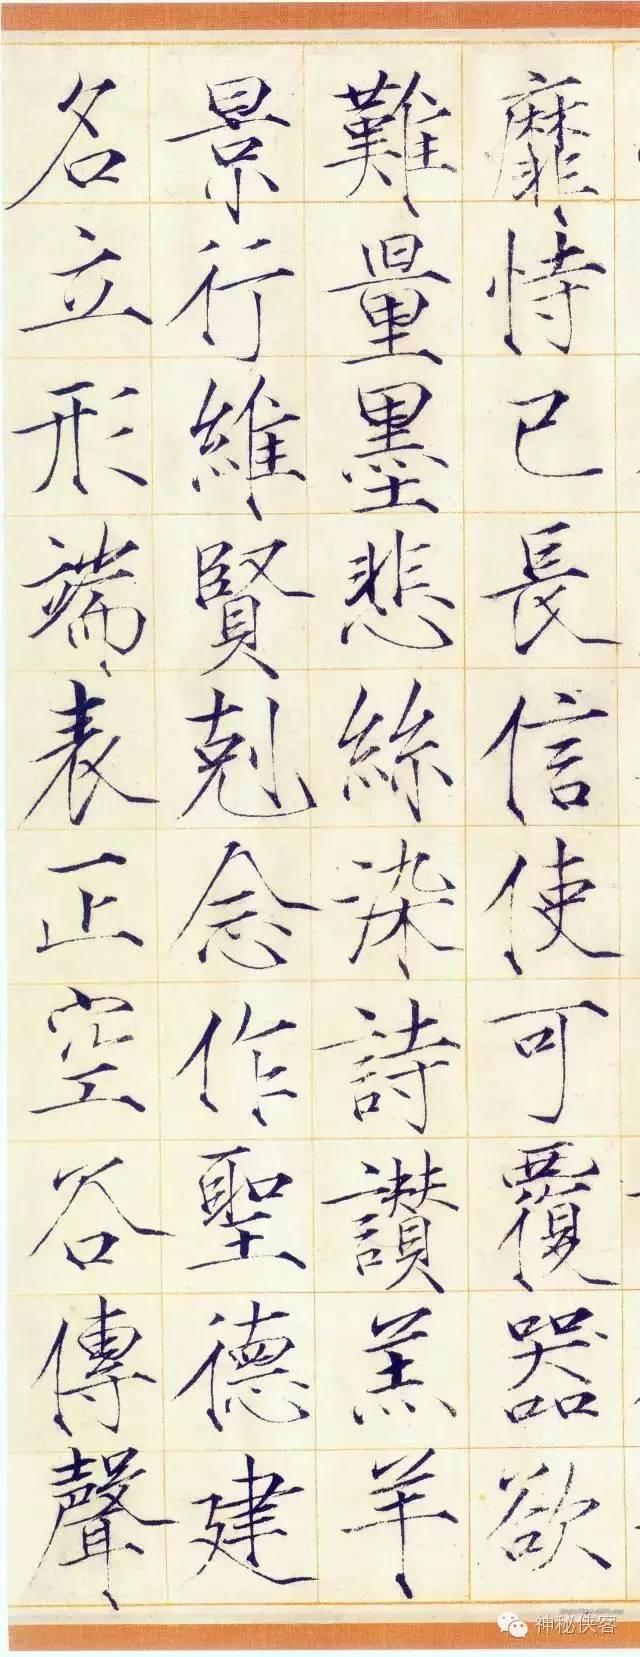 靡恃已長信使可覆器欲
難量墨悲絲染詩讃羔羊
景行維賢剋念作聖德建
名立形端表正空谷傳聲
神秘侠客